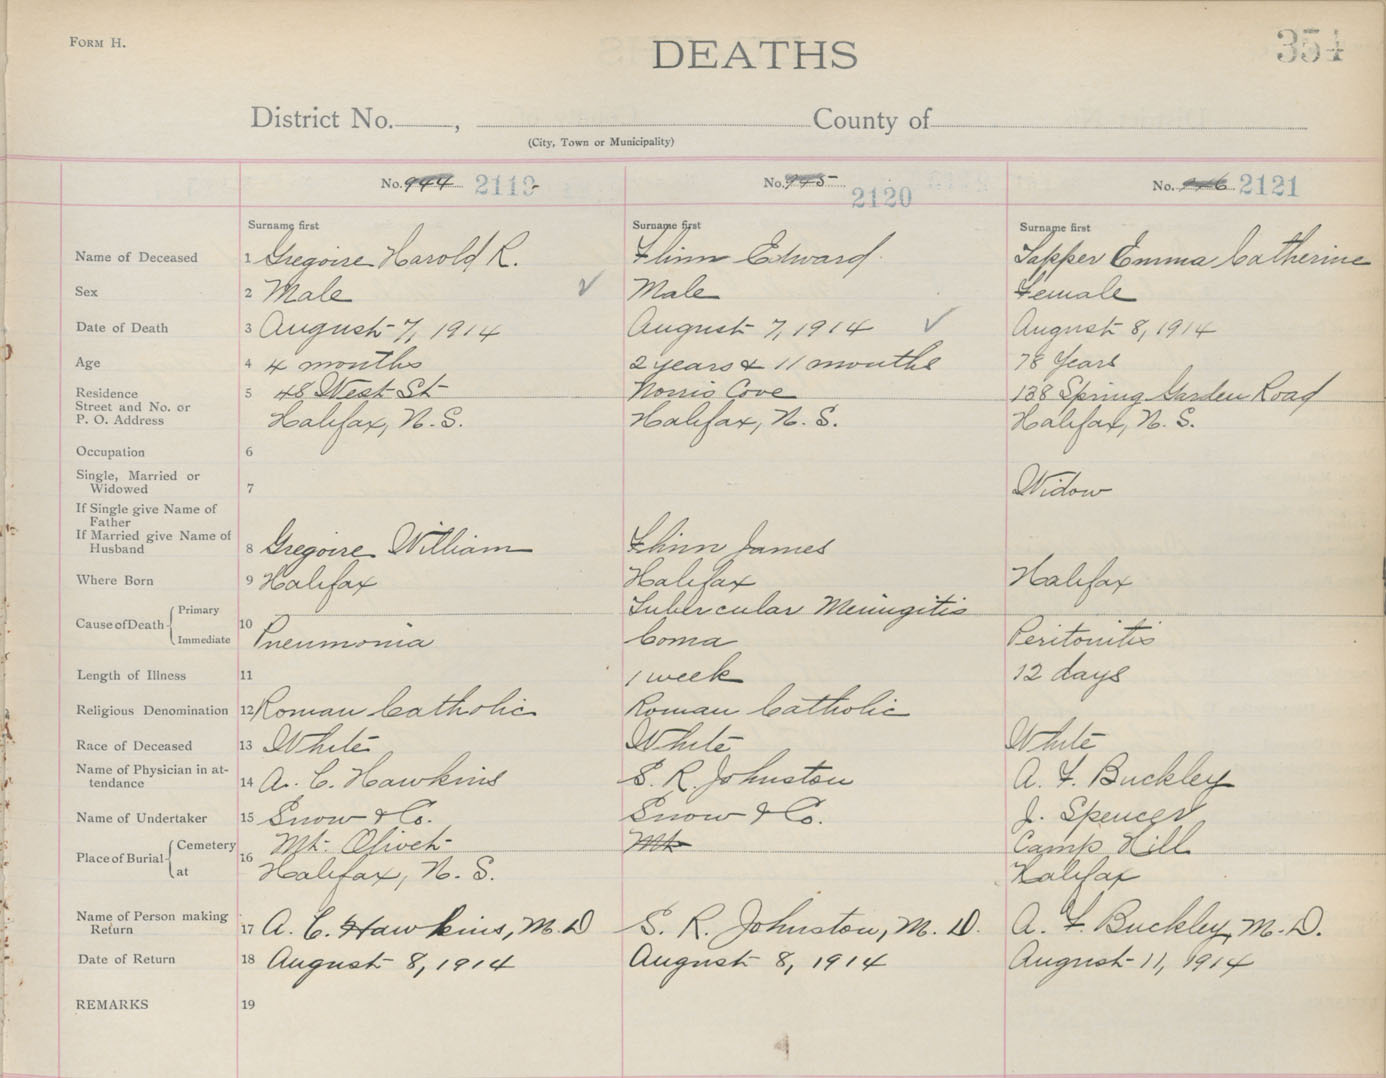 FORM H.
DEATHS
354
District No. , County of
(City, Town or Municipality)
No. 944 2119
No. 945 2120
No. 946 2121
Surname first
Surname first
Surname first
Name of Deceased 1 Gregoire Harold R. Flinn Edward Tapper Emma Catherine
Sex 2 Male Male Female
Date of Death 3 August 7, 1914 August 7, 1914 August 8, 1914
Age 4 4 months 2 years & 11 months 78 Years
Residence 5 48 West St Norris Cove 138 Spring Garden Road
Street and No. or
P. O. Address Halifax, N. S. Halifax, N. S. Halifax, N. S.
Occupation 6
Single, Married or
Widowed 7 Widow
If Single give Name of
Father
If Married give Name of
Husband 8 Gregoire William Flinn James
Where Born 9 Halifax Halifax Halifax
Cause of Death Primary Tubercular Meningitis
10 Immediate Pneumonia Coma Peritonitis
Length of Illness 11 1 week 12 days
Religious Denomination 12 Roman Catholic Roman Catholic
Race of Deceased 13 White White White
Name of Physician in at-
tendance 14 A. C. Hawkins S. R. Johnston A. F. Buckley
Name of Undertaker 15 Snow & Co. Snow & Co. J. Spencer
Place of Burial Cemetery Mt. Olivet Mt Camp Hill
16 at Halifax, N. S. Halifax
Name of Person making
Return 17 A. C. Hawkins, M. D S. R. Johnston, M. D. A. F. Buckley, M. D.
Date of Return 18 August 8, 1914 August 8, 1914 August 11, 1914
REMARKS 19